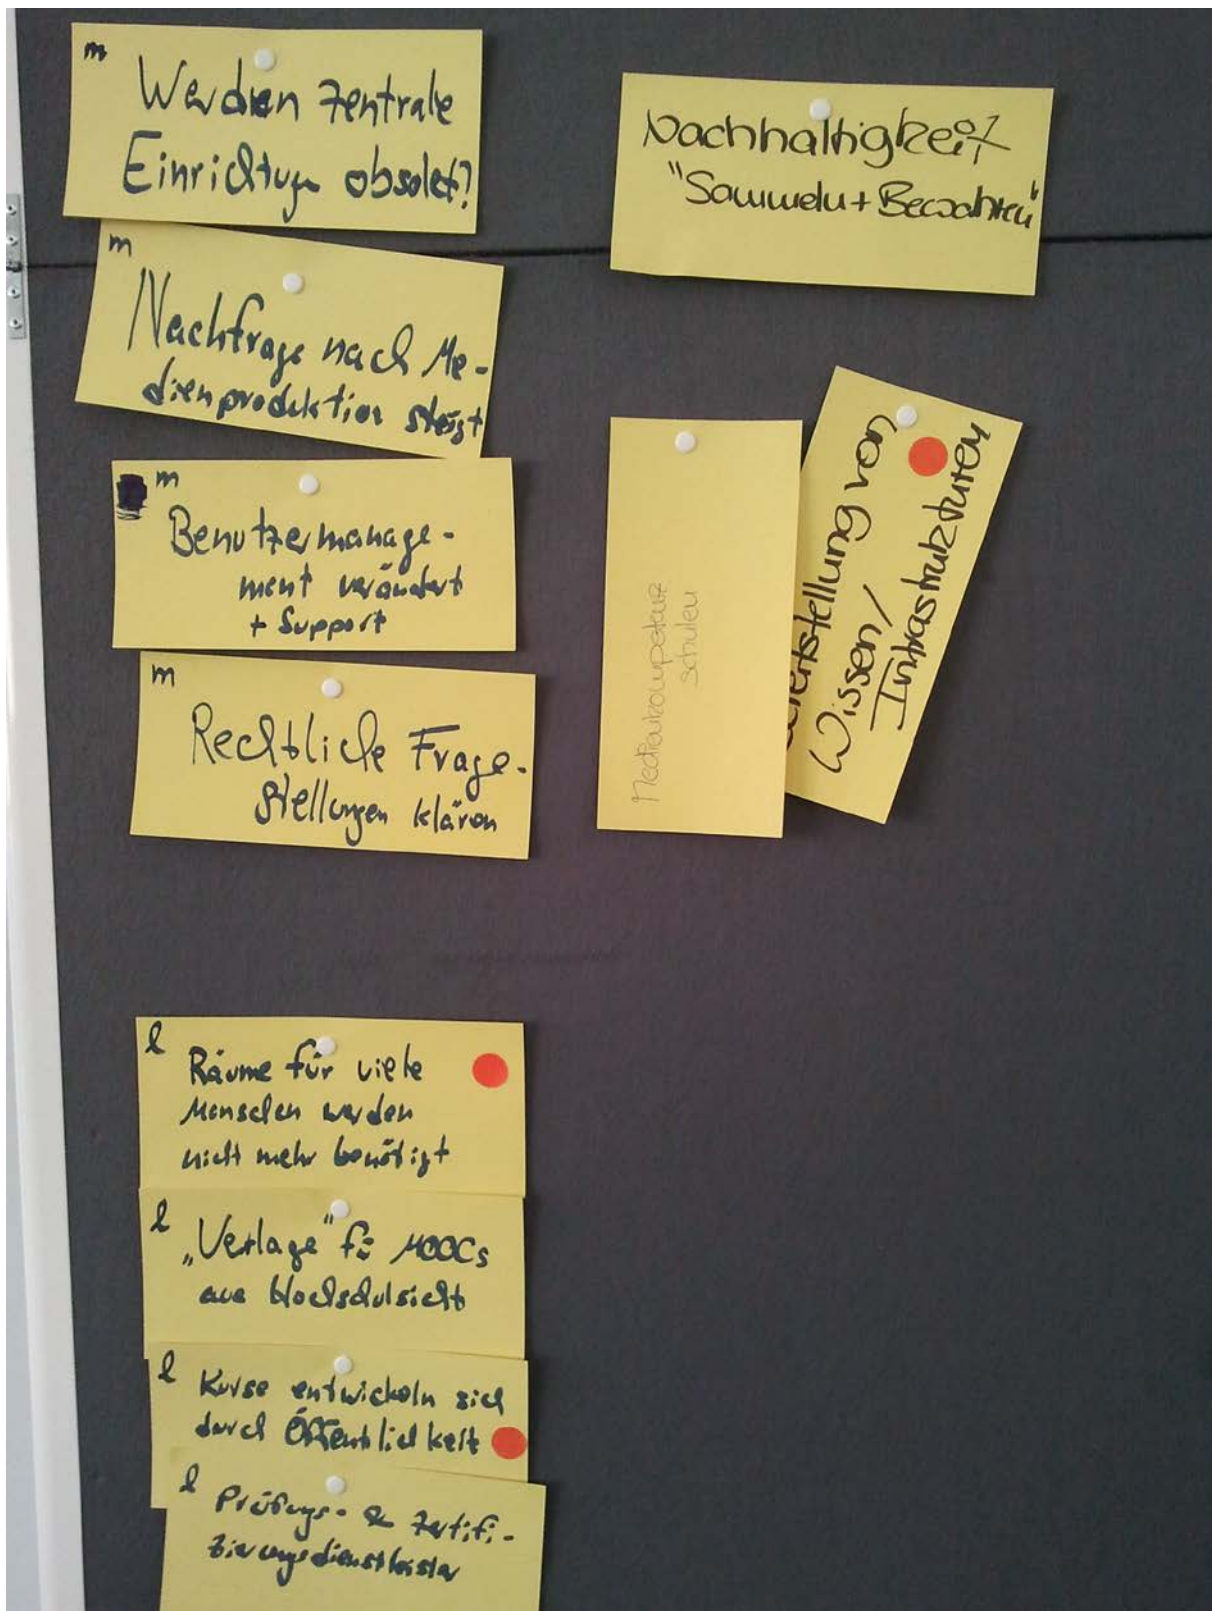 m
Werden zentrale
Einrichtungen obsolet?
m
Nachfrage nach Me-
dienproduktion steigt
m
Benutzermanage-
ment verändert
+ Support
m
Rechtliche Frage-
stellungen klären
Nachhaltigkeit
"Sammeln + Bewahren"
Medienkompetenz
schulen
von
Wissen /
Infrastrukturen
l
Räume für viele
Menschen werden
nicht mehr benötigt
l
„Verlage" für MOOCs
aus Hochschulsicht
l
Kurse entwickeln sich
durch Öffentlichkeit
l
Prüfungs- & Zertifi-
zierungsdienstleister